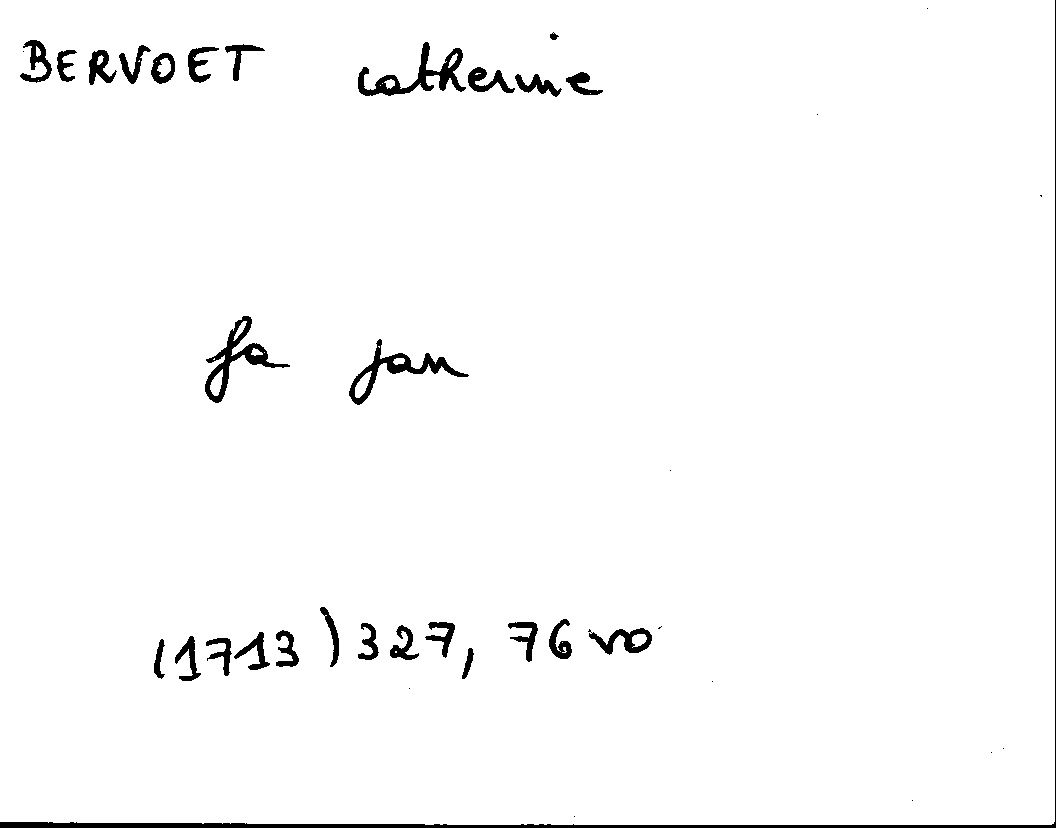 BERVOET catherine
fa jan
(1713) 327, 76 vo